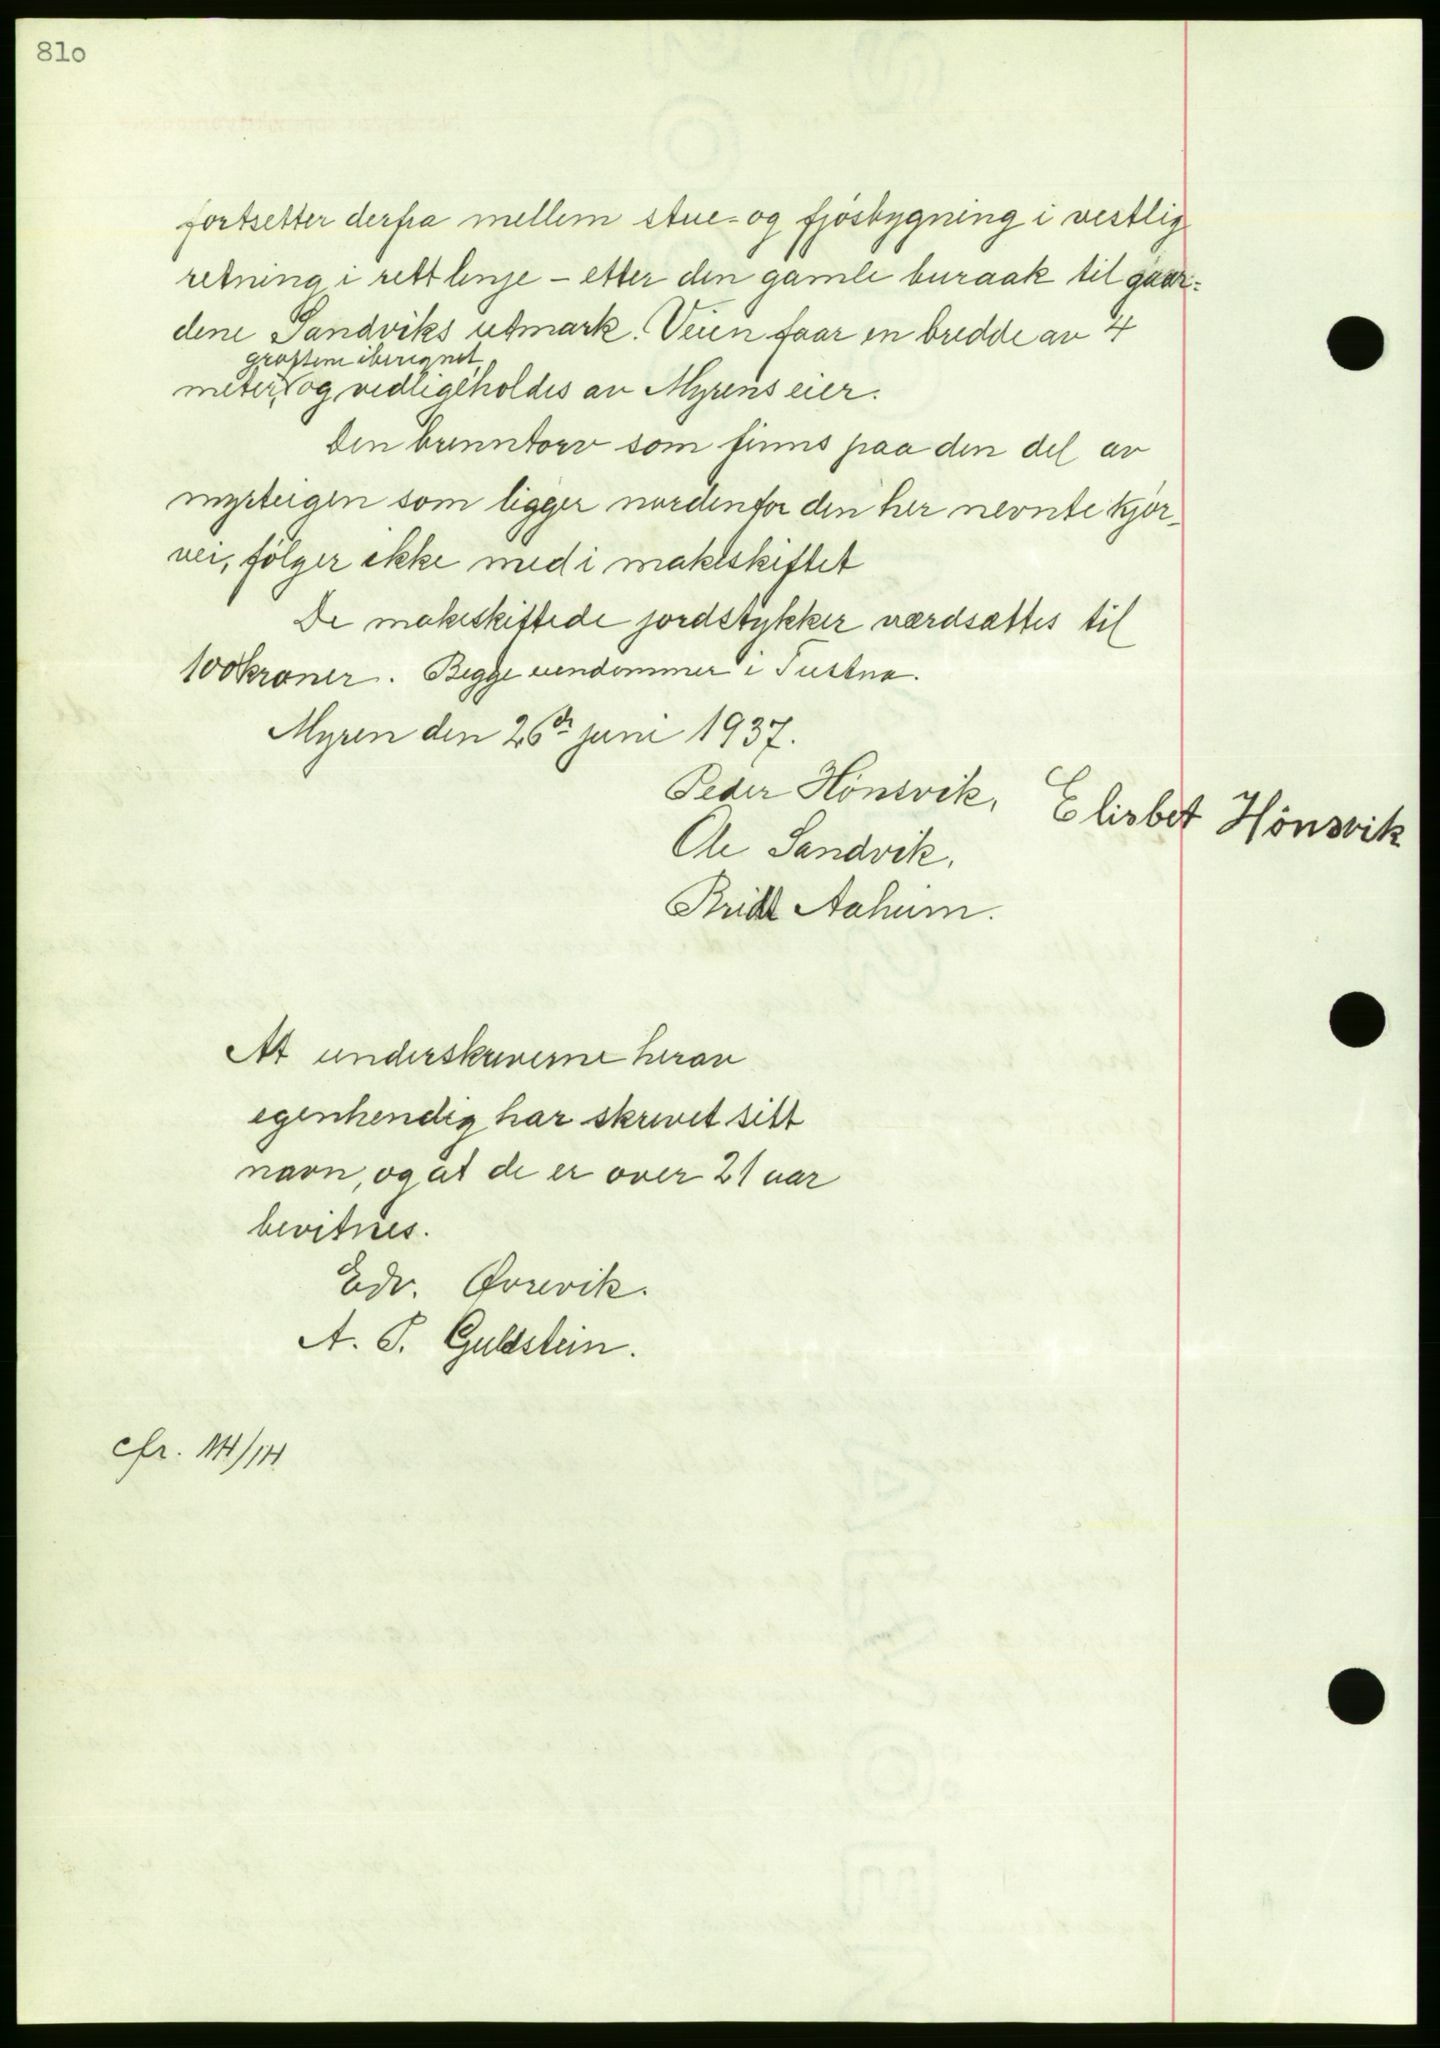 810
fortsetter derfra mellem stue- og fjøsbygning i vestlig
retning i rett linje – etter den gamle buraak til gaar-
dene Sandviks utmark. Veien faar en bredde av 4
grøftene iberegnet,
meter, og vedligeholdes av Myrens eier.
Den brenntorv som finns paa den del av
myrteigen som ligger nordenfor den her nevnte kjør-
vei, følger ikke med i makeskiftet
De makeskiftede jordstykker værdsættes til
100 kroner. Begge eiendommer i Tustna.
Myren den 26de juni 1937.
Peder Hönsvik, Elisbet Hönsvik
Ole Sandvik.
Bridt Aaheim.
At underskriverne herav
egenhendig har skrevet sitt
navn, og at de er over 21 aar
bevitnes.
Edv. Ørsvik.
A. P. Guldstein.
cfr. 14/14